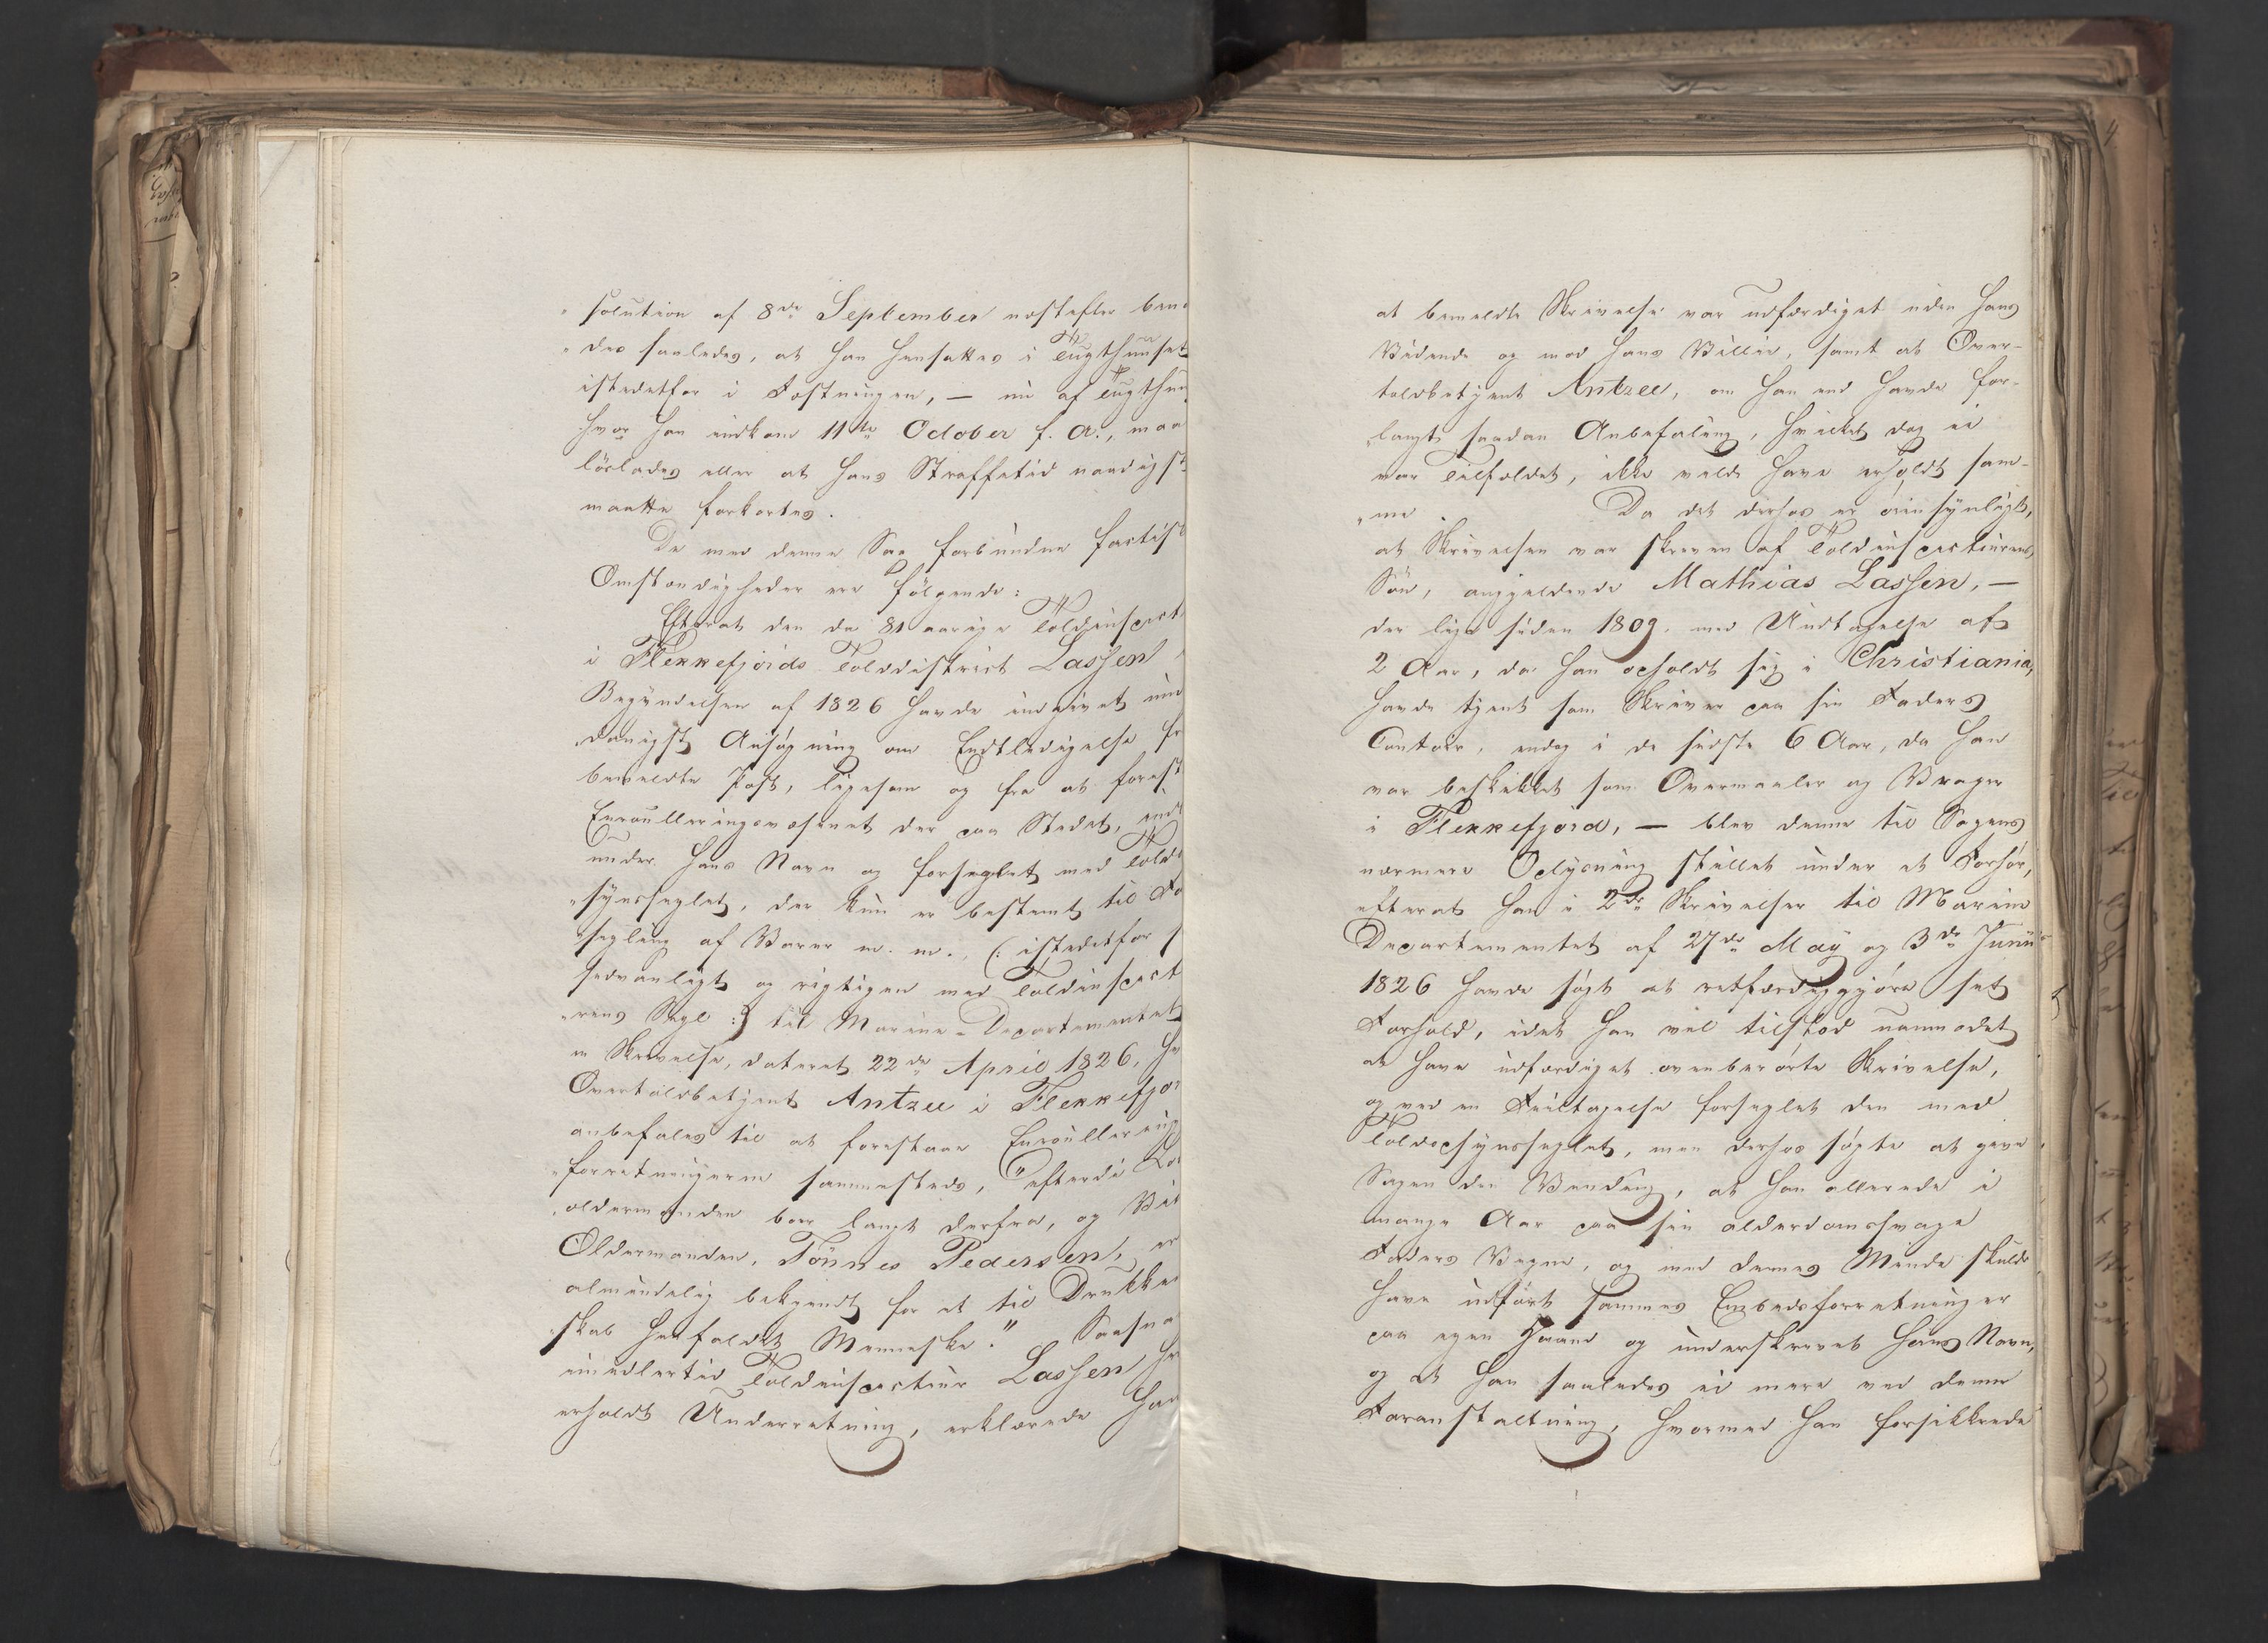 "solution af 8de September næstefter ben-
"des saaledes, at han hensattes i Tugthuuset
istedetfor i Fæstningen, — nu af Tugthuu
hvor han indkom 11te October f. A., maa
löslades eller at hans Straffetid naadigst
maatte forkortes.
De med denne Sag forbundne factisk
Omstændigheder ere fölgende:
Efterat den da 81 aarige Toldinspect
i Flekkefjords Tolddistrict Lassen
Begyndelsen af 1826 havde indgivet un
"danigst Ansögning om Entledigelse fr
bemeldte Post, ligesom og fra at forest
Enroulleringsvæsenet der paa Stedet, ind
under hans Navn og forseglet med Told
"synsseglet, der kun er bestemt til Fo
"segling af Varer m. m., (: istedetfor s
sædvanligt og rigtigen med Toldinspect
"rens Segl :) til Marine-Departementet
en Skrivelse, dateret 22de April 1826, hv
Overtoldbetjent Antzee i Flekkefjor
anbefales til at forestaae Enroullering
"forretningerne sammesteds, "efterdi Lo
"oldermanden boer langt derfra, og Vi
Oldermanden, Tönnes Pedersen, er
almindelig bekjendt for et til Drukken
"skab henfaldet Menneske." Saasna
imidlertid Toldinspecteur Lassen h
erholdt Underretning, erklærede han
at bemeldte Skrivelse var udfærdiget uden hans
Vidende og mod hans Villie, samt at Over-
toldbetjent Antzee, om han end havde for-
"langt saadan Anbefaling, hvilket dog ei
var Tilfældet, ikke vilde have erholdt sam-
"me. Da det derhos er öiensynligt,
at Skrivelsen var skreven af Toldinspecteurens
Sön, angjeldende Mathias Lassen, —
der lige siden 1809. med Undtagelse af
2 Aar, da han opholdt sig i Christiania,
havde tjent som Skriver paa sin Faders
Contoir, endog i de sidste 6 Aar, da han
var beskikket som Overmaaler og Vrager
i Flekkefjord, — blev denne til Sagens
nærmere Oplysning stillet under et Forhör,
efterat han i 2de Skrivelser til Marine
Departementet af 27de May og 3de Junii
1826 havde sögt at retfærdiggjöre sit
Forhold, idet han vel tilstod uanmodet
at have udfærdiget ovenberörte Skrivelse,
og ved en Feiltagelse forseglet den med
Toldopsynsseglet, men derhos sögte at give
Sagen den Vending, at han allerede i
mange Aar paa sin alderdomssvage
Faders Vegne, og med dennes Minde skulde
have udfört sammes Embedsforretninger
paa egen Haand og underskrevet hans Navn,
og at han saaledes ei mere ved denne
Foranstaltning, hvormed han forsikkrede